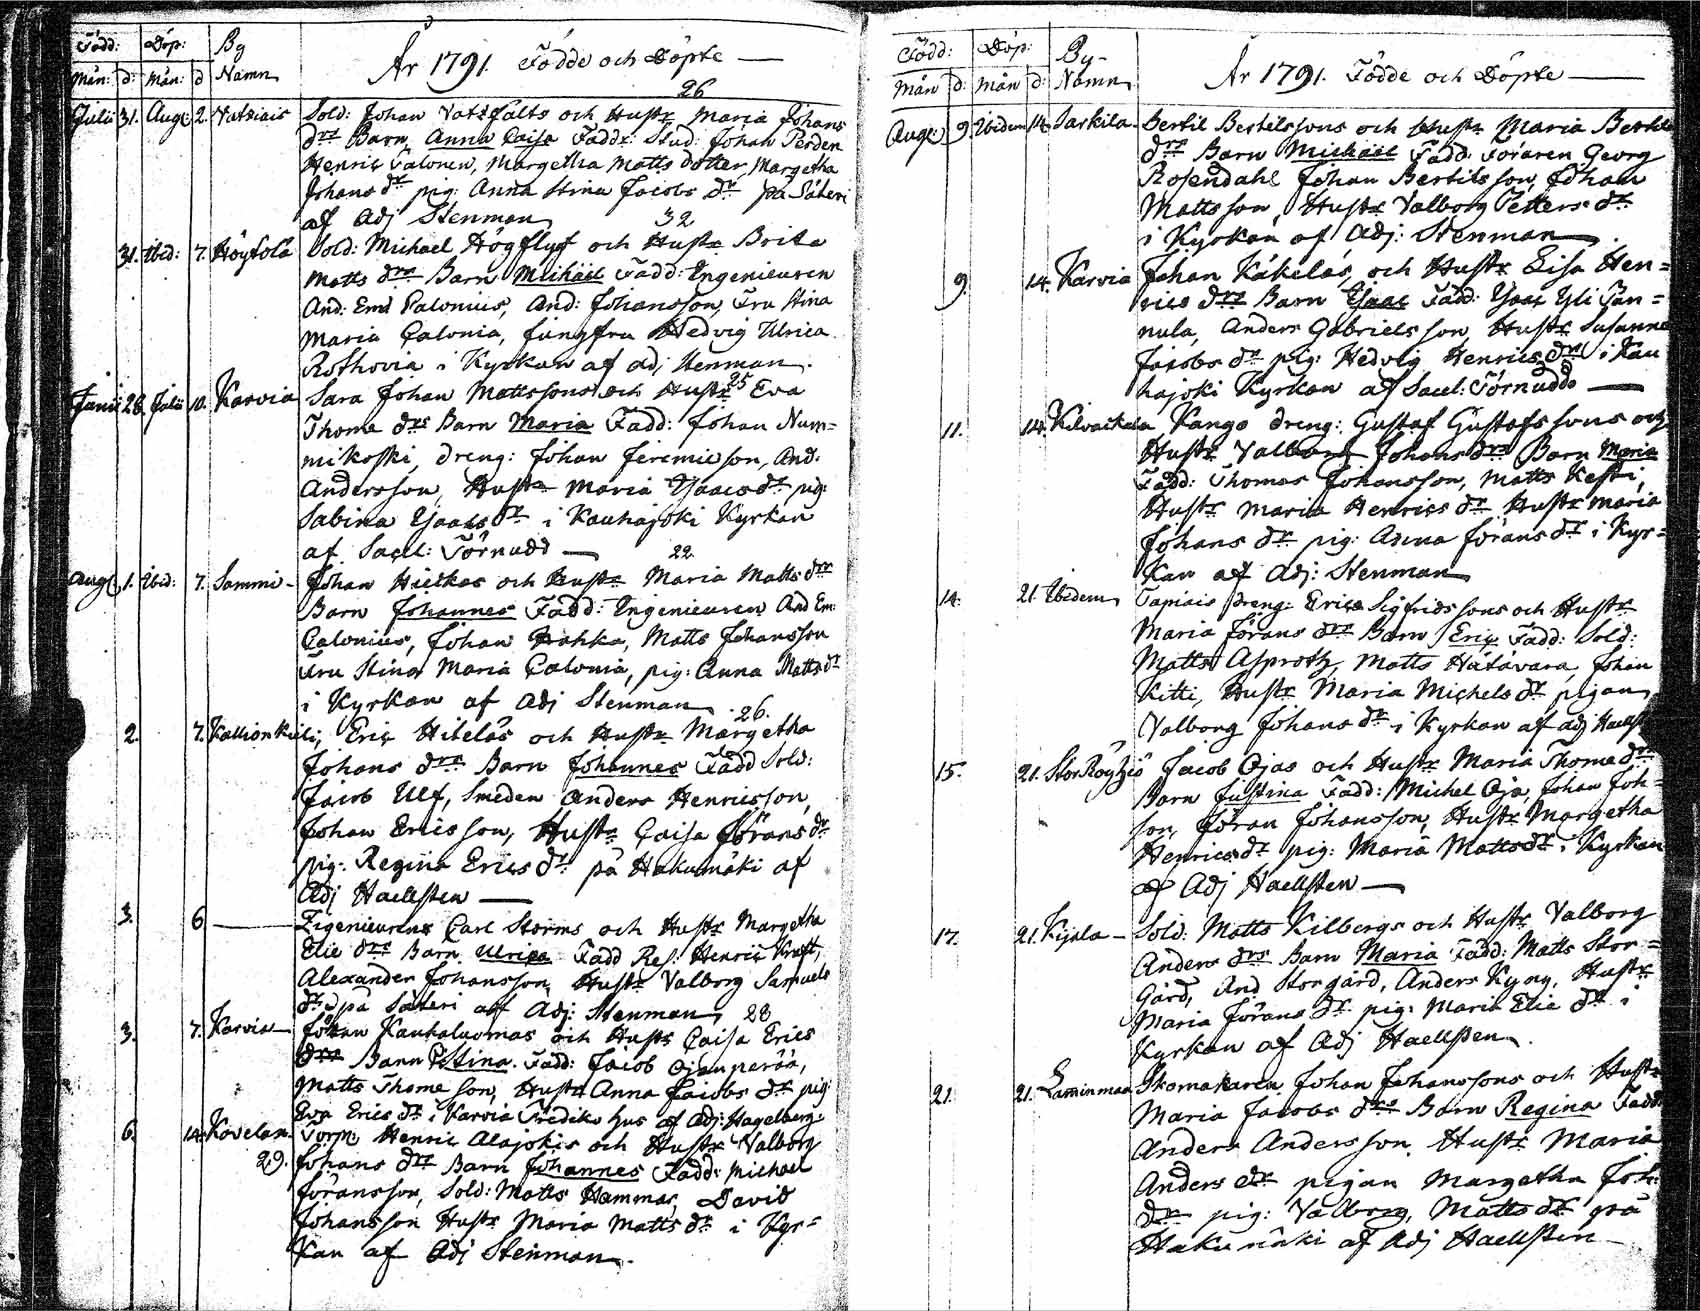 Född: Döp: By
Mån: d: Mån: d Namn
År 1791. Födde och Döpte
26
Julii 31. Aug: 2. Vatsiais Sold: Johan Vatsfälts och Hustr Maria Johans
drs Barn Anna Caisa Fadd: Stud: Johan Perden
Henric Salonen, Margetha Matts dotter, Margetha
Johans dr pig: Anna Stina Jacobs dr på Säteri
af Adj Stenman
32
31. Ibid: 7. Höytölä Sold: Michael Högflygt och Hustr Brita
Matts drs Barn Michäel Fadd: Engenieuren
And: Em: Calonius, And: Johansson, Fru Stina
Maria Calonia, Jungfru Hedvig Ulrica
Rothovia i Kyrkan af adj Stenman.
25
Junii 26 Julii 10. Karvia Sara Johan Mattssons och Hustr Eva
Thome drs Barn Maria Fadd: Johan Num=
mikoski, dreng: Johan Jeremieson, And:
Andersson, Hustr Maria Isaacs dr pig:
Sabina Isaacs dr i Kauhajoki Kyrkan
af Sacel: Törnudd
22.
Aug: 1. Ibid: 7. Sammi- Johan Hietkas och Hustr Maria Matts drs
Barn Johannes Fadd: Engenieuren And Em:
Calonius, Johan Hahka, Matts Johansson
Fru Stina Maria Calonia, pig: Anna Matts dr
i Kyrkan af Adj Stenman
26.
2. 7. Kallionkieli, Eric Hiteläs och Hustr Margetha
Johans drs Barn Johannes Fadd Sold:
Jacob Ulf, Smeden Anders Henricsson,
Johan Ericsson, Hustr Caisa Jörans dr
pig: Regina Erics dr på Hakumäki af
Adj Haellsten
3. 6 Engenieurens Carl Storms och Hustr Margetha
Elie drs Barn Ulrica Fadd Ref: Henric Kraft,
Alexander Johansson, Hustr Valborg Samuels
dr på Säteri aff Adj: Stenman
28
3. 7. Karvia Johan Kauhaluomas och Hustr Caisa Erics
drs Barn Stina. Fadd: Jacob Ojanperää,
Matts Thomeson, Hustr Anna Jacobs dr pig:
Eva Erics dr i Karvia Fredriks hus af Adj: Hagelberg.
6. 14. Kovelax. Torp: Henric Alajokis och Hustr Valborg
29. Johans drs Barn Johannes Fadd: Michael
Jöransson, Sold: Matts Hammar, David
Johansson Hustr Maria Matts dr i Kyr=
kan af Adj Stenman.
Född: Döp: By-
Mån d: Mån d: Namn
År 1791. Födde och Döpte
Aug: 9. Ibidem 14. Sarkila- Bertil Bertilssons och Hustr Maria Bertils
drs Barn Michäel Fadd: Foraren Georg
Rosendahl Johan Bertilsson, Johan
Mattsson, Hustr Valborg Petters dr
i Kyrkan af Adj: Stenman.
9. 14. Karvia Johan Käkeläs, och Hustr Lisa Hen=
rics drs Barn Isaac Fadd: Isaac Yli Pan=
nula, Anders Gabrielsson, Hustr Susanna
Jacobs dr pig: Hedvig Henrics dr i Kau
hajoki Kyrkan af Sacel: Törnudd
11. 14. Kilvackala Kangs dreng: Gustaf Gustafssons och
Hustr Valborg Johans drs Barn Maria
Fadd: Thomas Johansson, Matts Kesti,
Hustr Maria Henrics dr Hustr Maria
Johans dr pig: Anna Jörans dr i Kyr=
kan af Adj: Stenman
14. 21. Ibidem Tapiais dreng: Erics Sigfridssons och Hustr
Maria Jörans drs Barn Eric Fadd: Sold:
Matts Asproth, Matts Hätävara, Johan
Kitti, Hustr Maria Michels dr pigan
Valborg Johans dr i Kyrkan af adj Haellst
15. 21. Stor Röyhiö Jacob Ojas och Hustr Maria Thome drs
Barn Justina Fadd: Michel Oja, Johan Joh=
son, Jöran Johansson, Hustr Margetha
Henrics dr pig: Maria Matts dr i Kyrkan
af Adj Haellsten
17. 21. Kyrla- Sold: Matts Kilbergs och Hustr Valborg
Anders drs Barn Maria Fadd: Matts Stor=
gård, And Storgård, Anders Kyny, Hustr
Maria Jörans dr pig: Maria Elie dr i
Kyrkan af Adj Haellsten.
21. 21. Laminmaa Skomakaren Johan Johanssons och Hustr
Maria Jacobs drs Barn Regina Fadd:
Anders Andersson, Hustr Maria
Anders dr pigan Margetha Joh:
dr pig: Valborg, Matts dr på
Hakumäki af Adj Haellsten